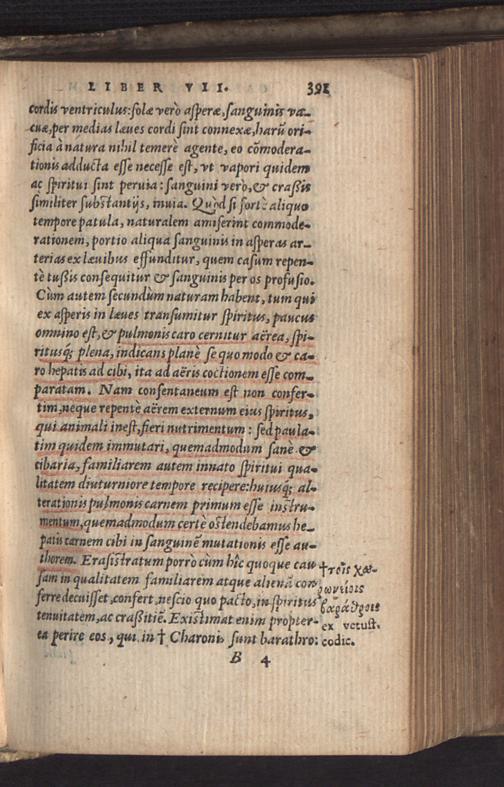 LIBER VII. 391
cordis ventriculus: solæ verò asperæ, sanguinis va-
cuæ, per medias læues cordi sint connexæ, harũ ori-
ficia à natura nihil temerè agente, eo cõmodera-
tionis adducta esse necesse est, vt vapori quidem
ac spiritui sint peruia: sanguini verò, & crassis
similiter substantijs, inuia. Quòd si fortè aliquo
tempore patula, naturalem amiserint commode-
rationem, portio aliqua sanguinis in asperas ar-
terias ex læuibus effunditur, quem casum repen-
tè tussis consequitur & sanguinis per os profusio.
Cùm autem secundùm naturam habent, tum qui
ex asperis in læues transumitur spiritus, paucus
omnino est, & pulmonis caro cernitur aërea, spi-
ritusq; plena, indicans planè se quo modo & ca-
ro hepatis ad cibi, ita ad aëris coctionem esse com-
paratam. Nam consentaneum est non confer-
tim, neque repentè aërem externum eius spiritus,
qui animali inest, fieri nutrimentum: sed paula-
tim quidem immutari, quemadmodum sanè &
cibaria, familiarem autem innato spiritui qua-
litatem diuturniore tempore recipere: huiusq; al-
terationis pulmonis carnem primum esse instru-
mentum, quemadmodum certè ostendebamus he-
patis carnem cibi in sanguinẽ mutationis esse au-
thorem. Erasistratum porrò cùm hîc quoque cau
sam in qualitatem familiarem atque alienã con
ferre decuisset, confert, nescio quo pacto, in spiritus
tenuitatem, ac crassitiẽ. Existimat enim propter-
ea perire eos, qui in † Charonis sunt barathro:
† τοῖς χα-
ρωνείοις
βαράθροις
ex vetust.
codic.
B 4